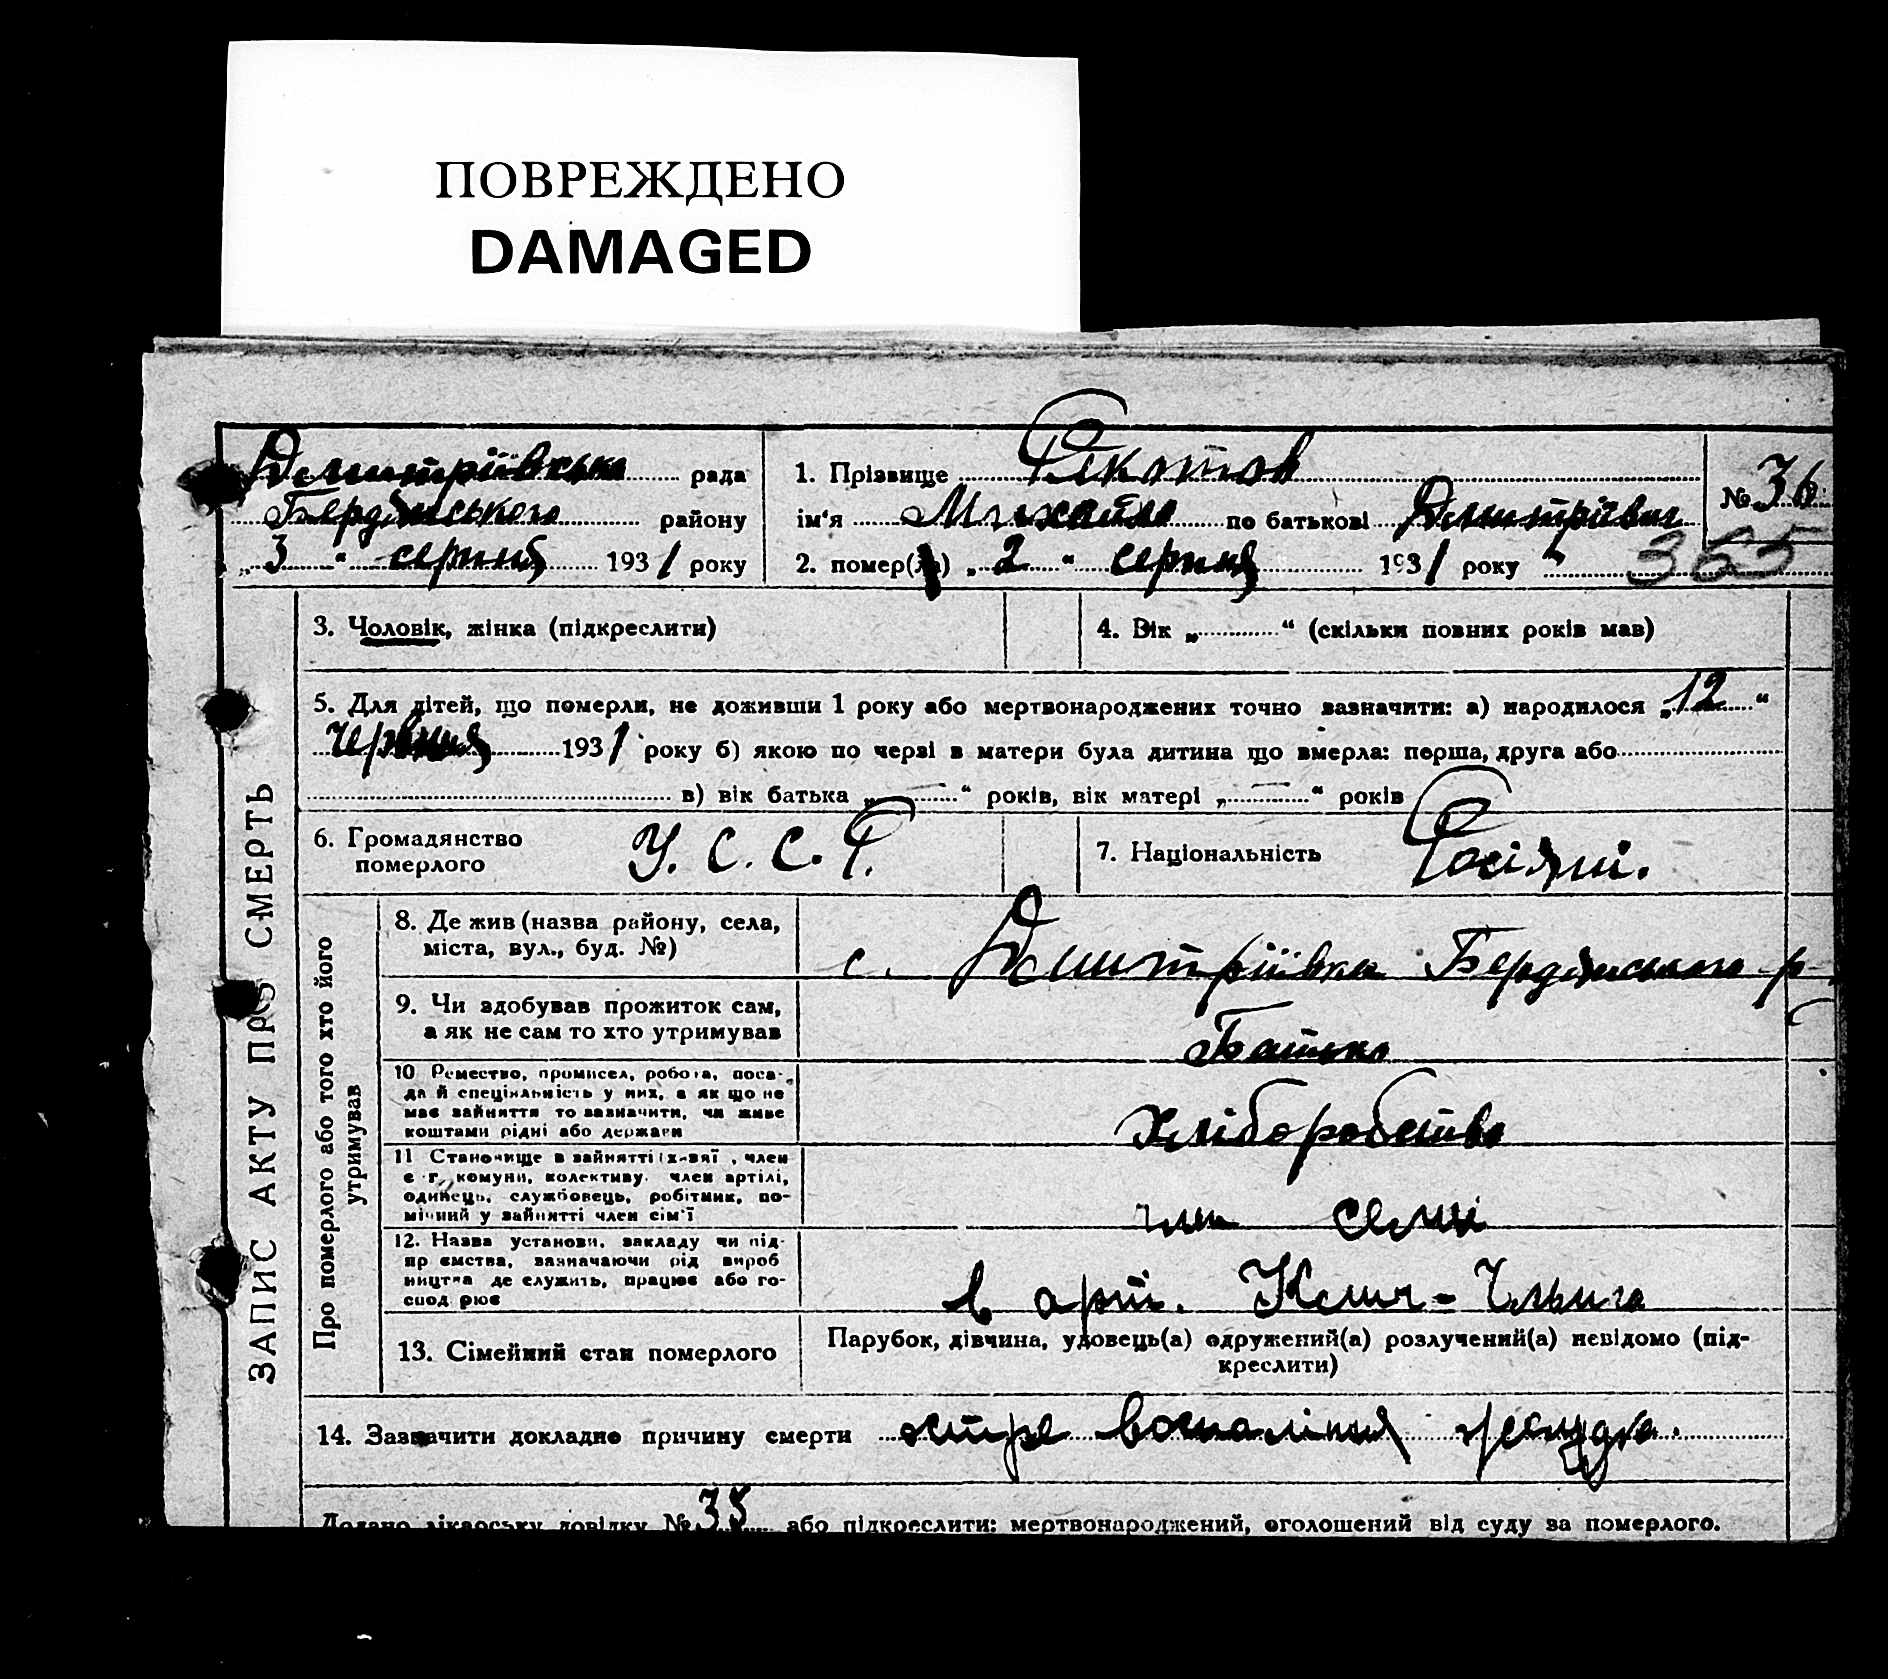 ПОВРЕЖДЕНО
DAMAGED
Дмитріївська рада
Бердянського району
„3“ серпня 1931 року
1. Прізвище
ім‘я Михайло по батькові Дмитріівич
2. помер(ла) „2“ серпня 1931 року
№ 36
365
3. Чоловік, жінка (підкреслити)
4. Вік „ “ (скільки повних років мав)
5. Для дітей, що померли, не доживши 1 року або мертвонароджених точно зазначити: а) народилося „12“
червня 1931 року б) якою по черзі в матери була дитина що вмерла: перша, друга або
в) вік батька „—“ років, вік матері „—“ років
6. Громадянство
померлого
У. С. С. Р.
7. Національність
Росіян.
ЗАПИС АКТУ ПРО СМЕРТЬ
Про померлого або того хто його
утримував
8. Де жив (назва району, села,
міста, вул., буд. №)
с. Дмитріївка Бердянського р
9. Чи здобував прожиток сам,
а як не сам то хто утримував
Батько
10 Ремество, промисел, робота, поса-
да й спеціяльність у них, а як що не
має зайняття то зазначити, чи живе
коштами рідні або держави
хліборобство
11 Становище в зайнятті: хазяї, член
с г. комуни, колективу, член артілі,
одинець, службовець, робітник, по-
мічний у зайнятті член сім‘ї
член семі
12. Назва установи, закладу чи під-
пр ємства, зазначаючи рід вироб
ництва де служить, працює або го-
спод рює
в арт.
13. Сімейний стан померлого
Парубок, дівчина, удовець(а) одружений(а) розлучений(а) невідомо (під-
креслити)
14. Зазначити докладно причину смерти остре воспалінія желудка.
Додано лікарську довідку № 35 або підкреслити: мертвонароджений, оголошений від суду за померлого.